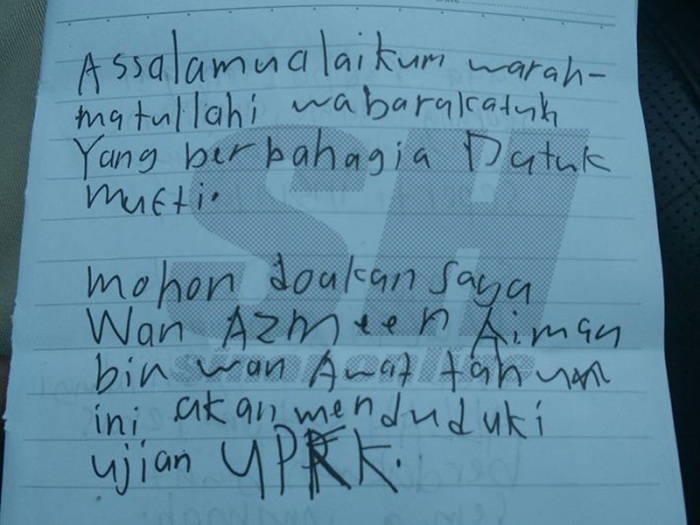 Assalamualaikum warah-
matullahi wabarakatuh
Yang berbahagia Datuk
Mufti.
mohon doakan saya
Wan Azmeen Aiman
bin wan Awat tahun
ini akan menduduki
ujian UPRK.
SH
sinaronline